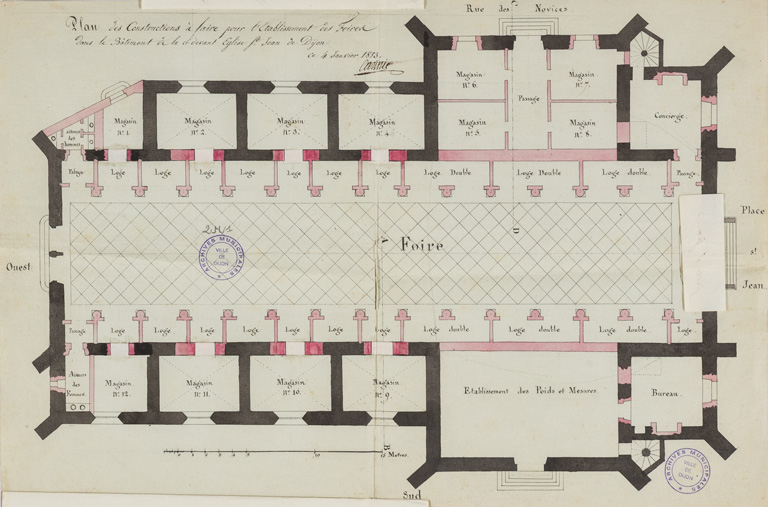 Rue des Novices
Plan des Constructions à faire pour l'Etablissement des Foires
dans le Bâtiment de la ci devant Eglise St. Jean de Dijon
ce 4 Janvier 1813.
Magasin
N.º 6.
Passage
Magasin
N.º 7.
Magasin
N.º 5.
Magasin
N.º 8.
Concierge.
des
hommes
Magasin
N.º 1.
Magasin
N.º 2.
Magasin
N.º 3.
Magasin
N.º 4.
Loge
Loge
Loge
Loge
Loge
Loge
Loge
Loge Double
Loge Double
Loge double
Passage.
Place
St
Jean.
Ouest
Foire
A
D
ARCHIVES MUNICIPALES
VILLE
DE
DIJON
Passage
Loge
Loge
Loge
Loge
Loge
Loge
Loge
Loge double
Loge double
Loge double
Loge.
des
Femmes
Magasin
N.º 12.
Magasin
N.º 11.
Magasin
N.º 10.
Magasin
N.º 9.
Etablissement des Poids et Mesures.
Bureau.
B
Metres.
ARCHIVES MUNICIPALES
VILLE
DE
DIJON
Sud